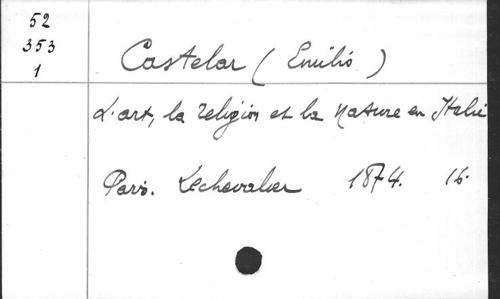 52
353
1
Castelar (Emilio)
L'art, la religion et la Nature en Italie
Paris. Lechevalier 1874. 16.